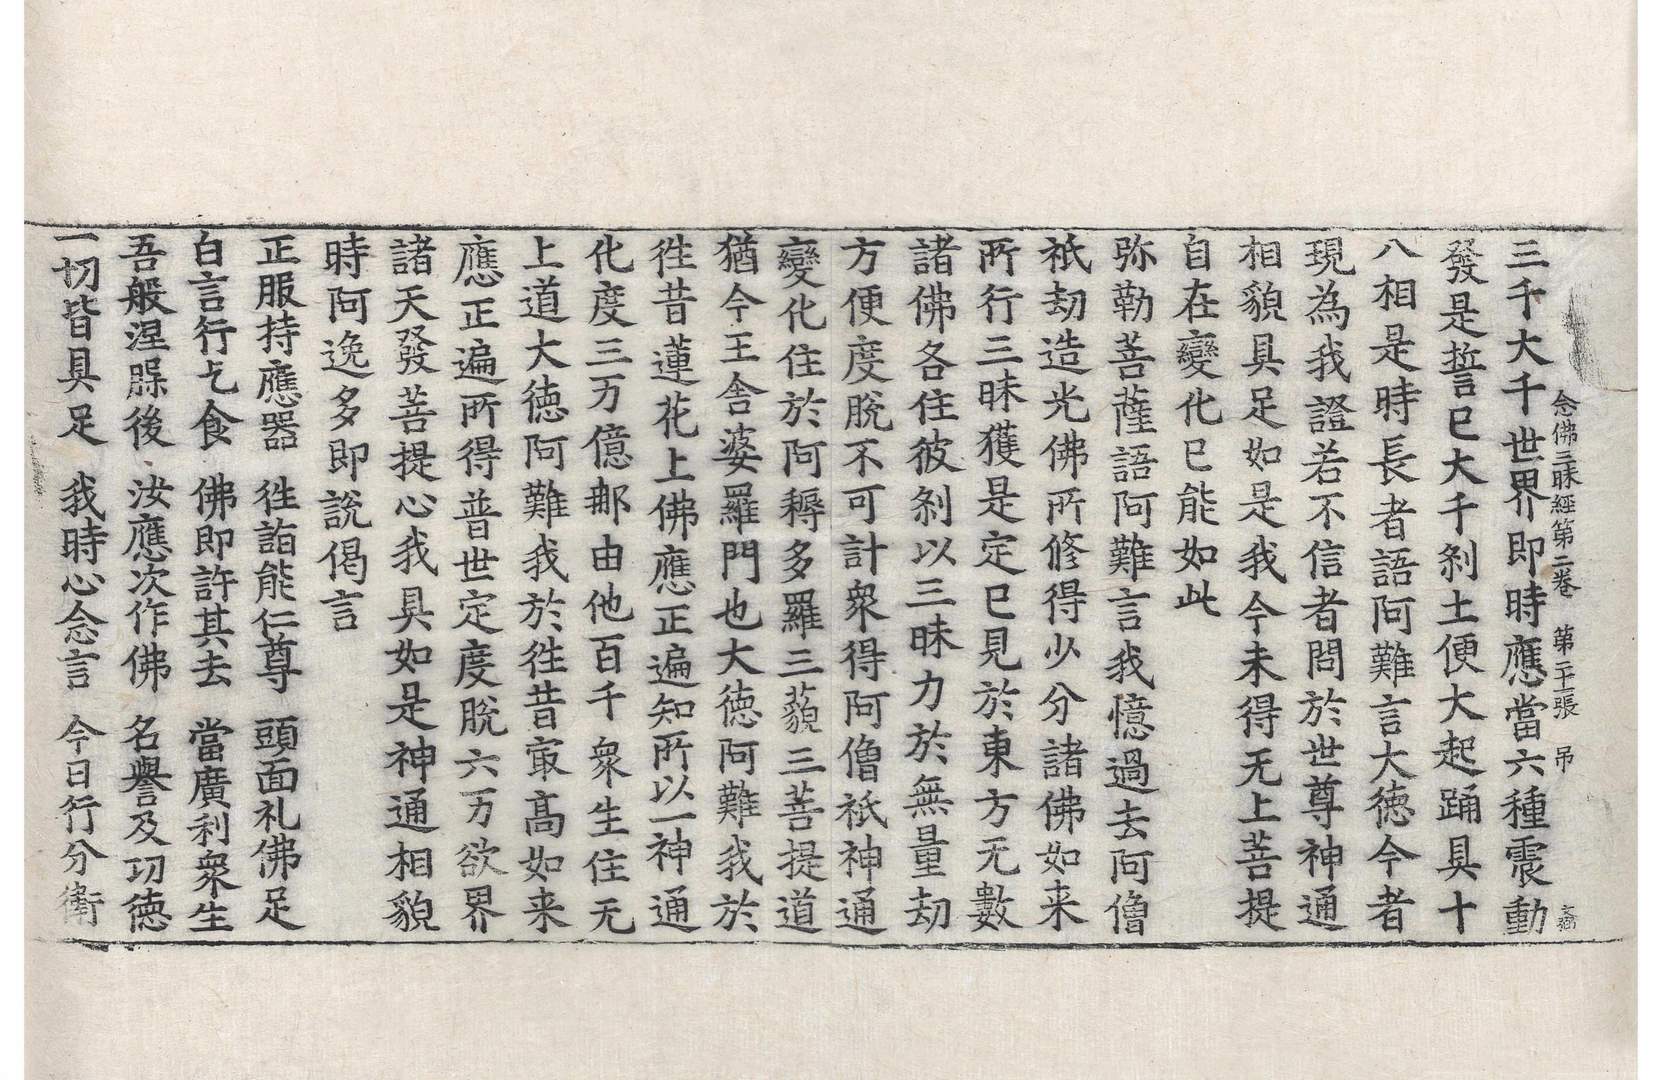 念佛三昧經第二卷 第二十二張 吊
三千大千世界即時應當六種震動
發是誓已大千刹土便大起踊具十
八相是時長者語阿難言大德今者
現為我證若不信者問於世尊神通
相貌具足如是我今未得无上菩提
自在變化已能如此
弥勒菩薩語阿難言我憶過去阿僧
祇劫造光佛所修得少分諸佛如来
所行三昧獲是定已見於東方无數
諸佛各住彼刹以三昧力於無量劫
方便度脫不可計衆得阿僧祇神通
變化住於阿耨多羅三藐三菩提道
猶今王舍婆羅門也大德阿難我於
徃昔蓮花上佛應正遍知所以一神通
化度三万億那由他百千衆生住无
上道大德阿難我於徃昔㝡高如来
應正遍所得普世定度脫六万欲界
諸天發菩提心我具如是神通相貌
時阿逸多即說偈言
正服持應器 徃詣能仁尊 頭面礼佛足
白言行乞食 佛即許其去 當廣利衆生
吾般涅槃後 汝應次作佛 名譽及功德
一切皆具足 我時心念言 今日行分衛